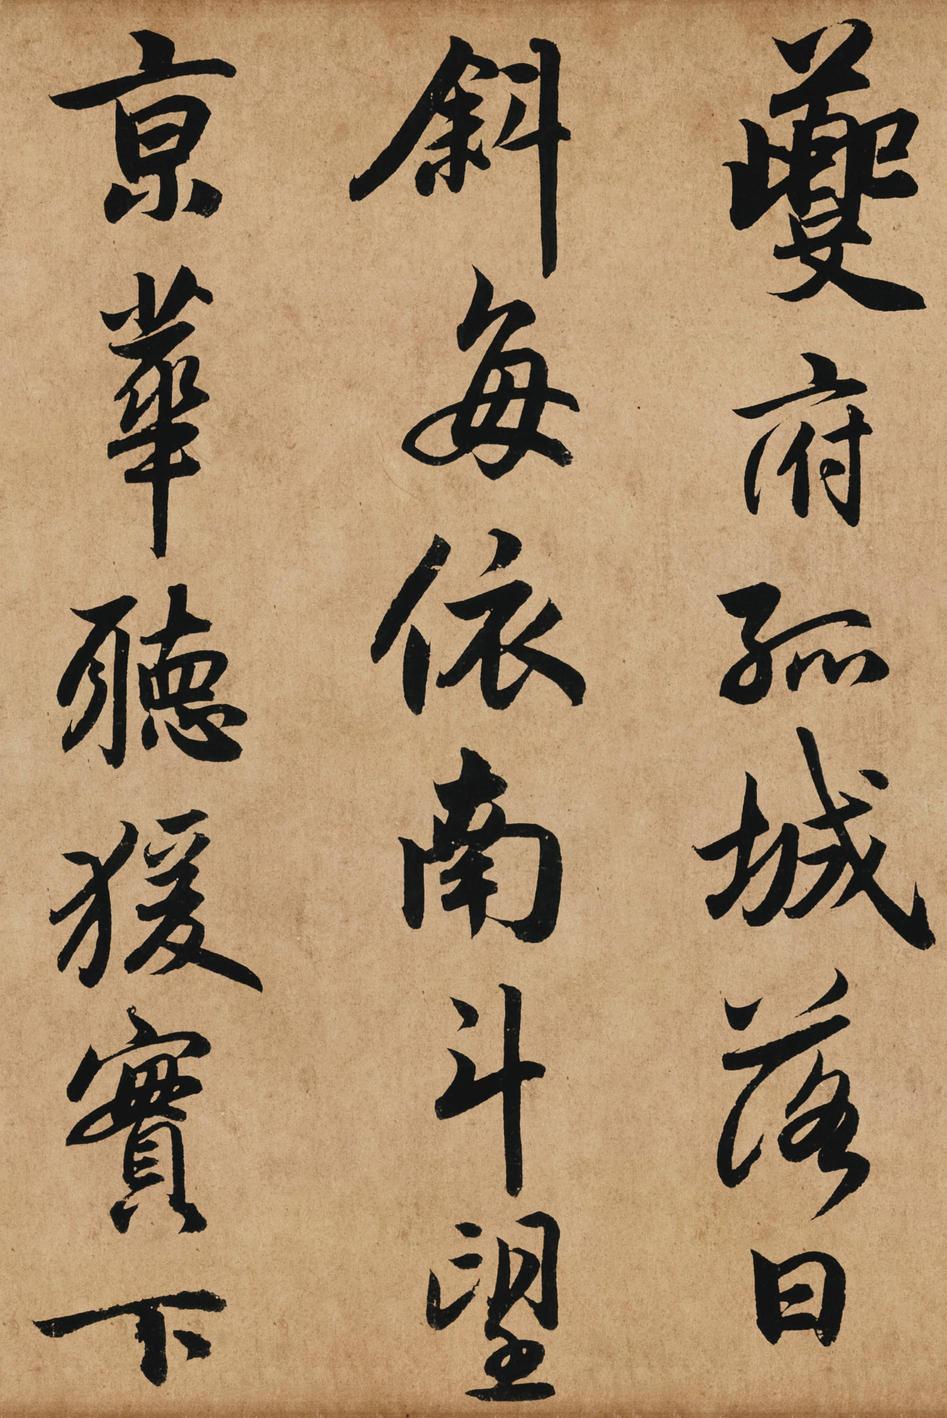 夔府孤城落日
斜每依南斗望
京華聽猨實下